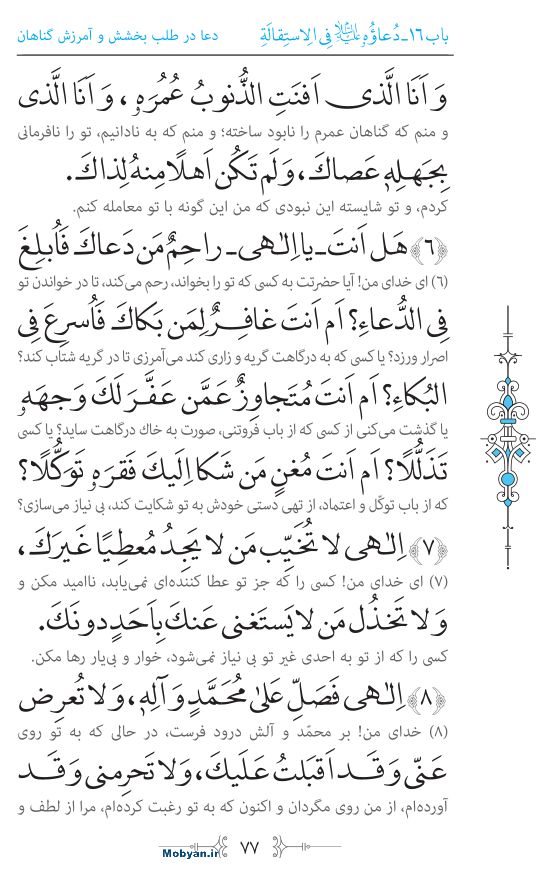 باب ۱۶ـ دُعاؤُهُ علیه‌السلام فِی الِاستِقالَةِ
دعا در طلب بخشش و آمرزش گناهان
وَ اَنَا الَّذی اَفنَتِ الذُّنوبُ عُمُرَهٗ، وَ اَنَا الَّذی
و منم که گناهان عمرم را نابود ساخته؛ و منم که به نادانیم، تو را نافرمانی
بِجَهلِهٖ عَصاكَ، وَ لَم تَکُن اَهلًا مِنهُ لِذاكَ.
کردم، و تو شایسته این نبودی که من این گونه با تو معامله کنم.
﴿۶﴾ هَل اَنتَ ـ یا اِلٰهی ـ راحِمٌ مَن دَعاكَ فَاُبلِغَ
(۶) ای خدای من! آیا حضرتت به کسی که تو را بخواند، رحم می‌کند، تا در خواندن تو
فِی الدُّعاءِ؟ اَم اَنتَ غافِرٌ لِمَن بَکاكَ فَاُسرِعَ فِی
اصرار ورزد؟ یا کسی که به درگاهت گریه و زاری کند می‌آمرزی تا در گریه شتاب کند؟
البُکاءِ؟ اَم اَنتَ مُتَجاوِزٌ عَمَّن عَفَّرَ لَكَ وَجهَهٗ
یا گذشت می‌کنی از کسی که از باب فروتنی، صورت به خاك درگاهت ساید؟ یا کسی
تَذَلُّلًا؟ اَم اَنتَ مُغنٍ مَن شَکا اِلَیكَ فَقرَهٗ تَوَکُّلًا؟
که از باب توکّل و اعتماد، از تهی دستی خودش به تو شکایت کند، بی نیاز می‌سازی؟
﴿۷﴾ اِلٰهی لا تُخَیِّب مَن لا یَجِدُ مُعطِیًا غَیرَكَ،
(۷) ای خدای من! کسی را که جز تو عطا کننده‌ای نمی‌یابد، ناامید مکن و
وَ لا تَخذُل مَن لا یَستَغنی عَنكَ بِاَحَدٍ دونَكَ.
کسی را که از تو به احدی غیر تو بی نیاز نمی‌شود، خوار و بی‌یار رها مکن.
﴿۸﴾ اِلٰهی فَصَلِّ عَلیٰ مُحَمَّدٍ وَ آلِهٖ، وَ لا تُعرِض
(۸) خدای من! بر محمّد و آلش درود فرست، در حالی که به تو روی
عَنّی وَ قَد اَقبَلتُ عَلَیكَ، وَ لا تَحرِمنی وَ قَد
آورده‌ام، از من روی مگردان و اکنون که به تو رغبت کرده‌ام، مرا از لطف و
۷۷
Mobyan.ir